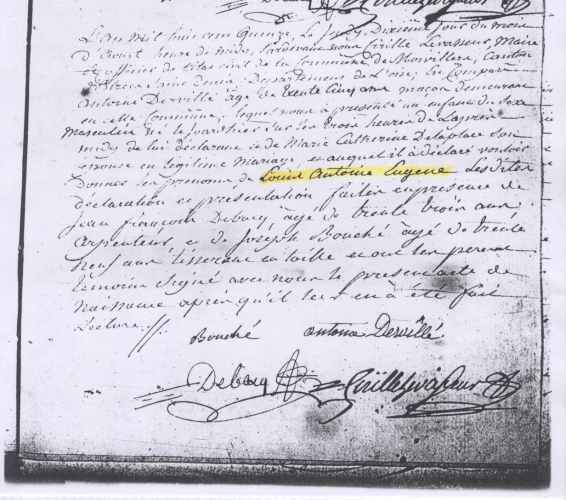 L'An mil huit cent Quinze, Le Dixième jour du mois
d'Aout heure de midi, Pardevant nous Cirille Levasseur, Maire
et officier de l'état civil de la Commune de Monvillers, Canton
Département de L'oise, Est Comparu
Antoine Dervillé agé de trente Cinq ans maçon demeurant
en cette Commune, lequel nous a présenté un enfant du Sexe
masculin né le jour d'hier sur les trois heures de L'après
midy de lui déclarant et de Marie Catherine Delaplace son
épouse en légitime Mariage et auquel il a déclaré vouloir
donner les prénoms de Louis Antoine Eugene Lesdites
déclaration et présentation faites en présence de
Jean françois Debacq agé de trente trois ans
Arpenteur et de Joseph Bouché agé de trente
neuf ans tisserand en toille et ont les père et
témoins Signé avec nous le présent acte de
Naissance après qu'il leur en a été fait
Lecture.//.
Bouché antoine Dervillé
Debacq Cirille Levasseur